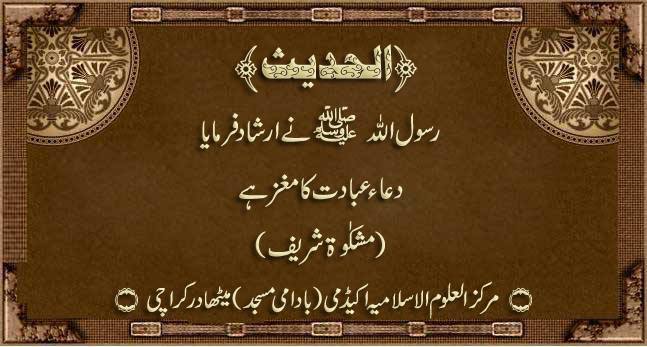 ﴿الحدیث﴾
رسول اللہ ﷺ نے ارشاد فرمایا
دعاء عبادت کا مغز ہے
(مشکوٰۃ شریف)
مرکز العلوم الاسلامیہ اکیڈمی (بادامی مسجد) میٹھادر کراچی